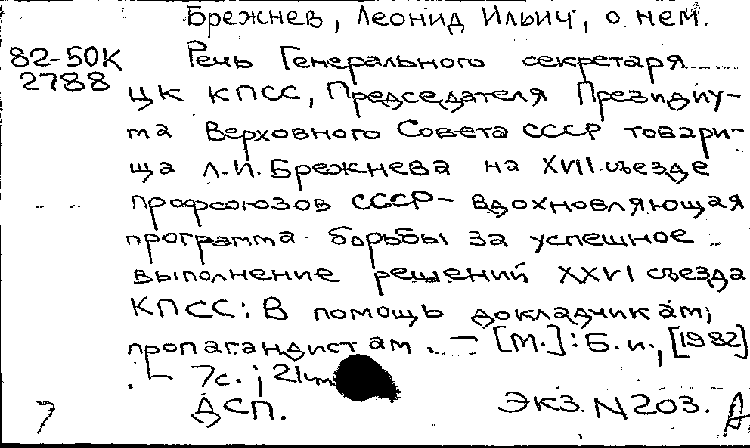 Брежнев, Леонид Ильич, о нем.
82-50К Речь Генерального секретаря
2788 ЦК КПСС, Председателя Президиу-
ма Верховного Совета СССР товари-
ща Л.И. Брежнева на XVII съезде
профсоюзов СССР - вдохновляющая
программа борьбы за успешное
выполнение решений XXVI съезда
КПСС: В помощь докладчикам,
пропагандистам. — [М.]: Б.и., [1982]
. - 7с.; 21см
7 ДСП. Экз. N203. А